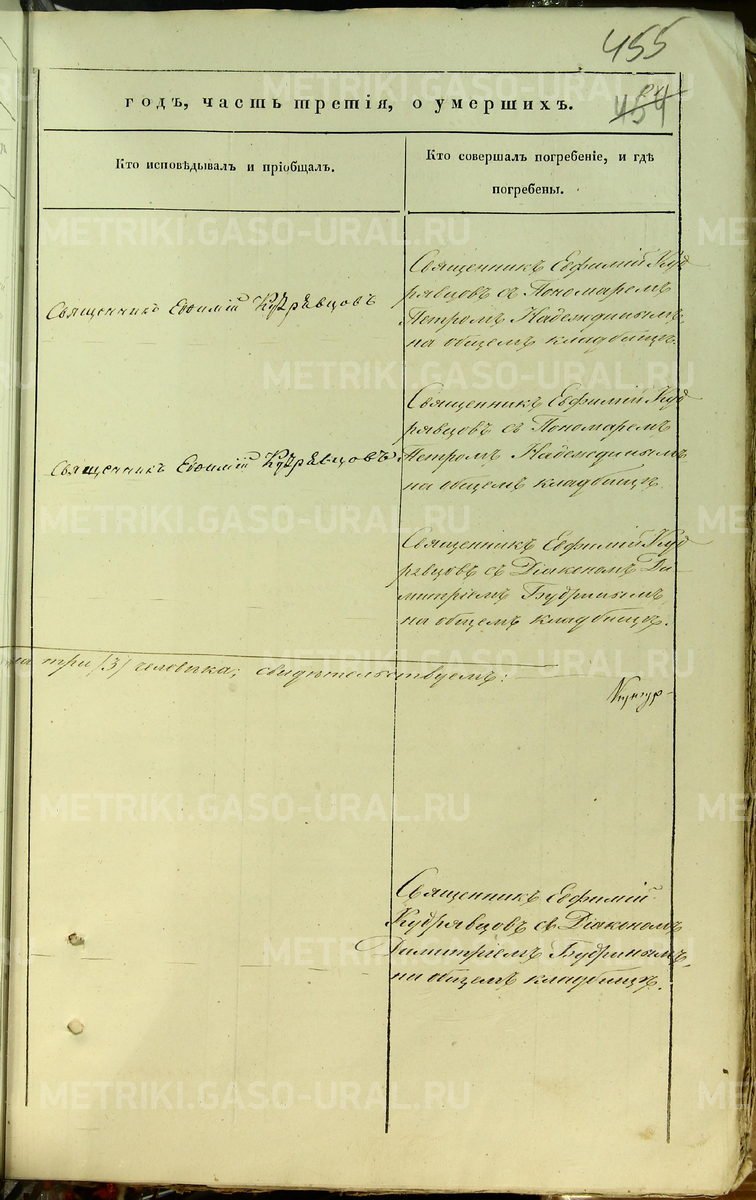 455
454
годъ, часть третія, о умершихъ.
Кто исповѣдывалъ и пріобщалъ.
Кто совершалъ погребеніе, и гдѣ
погребены.
Священникъ Евѳимій Кудрявцовъ
Священникъ Евфимій Куд
рявцовъ съ Пономаремъ
Петромъ Надеждинымъ,
на общемъ кладбищѣ.
Священникъ Евѳимій Кудрявцовъ
Священникъ Евфимій Куд
рявцовъ съ Пономаремъ
Петромъ Надеждинымъ
на общемъ кладбищѣ.
Священникъ Евфимій Куд
рявцовъ съ Діакономъ Ди
митріемъ Будринымъ,
на общемъ кладбищѣ.
три /3/ человѣка; свидѣтельствуемъ:
Священникъ Евфимій
Кудрявцовъ съ Діакономъ
Димитріемъ Будринымъ,
на общемъ кладбищѣ.
METRIKI.GASO-URAL.RU